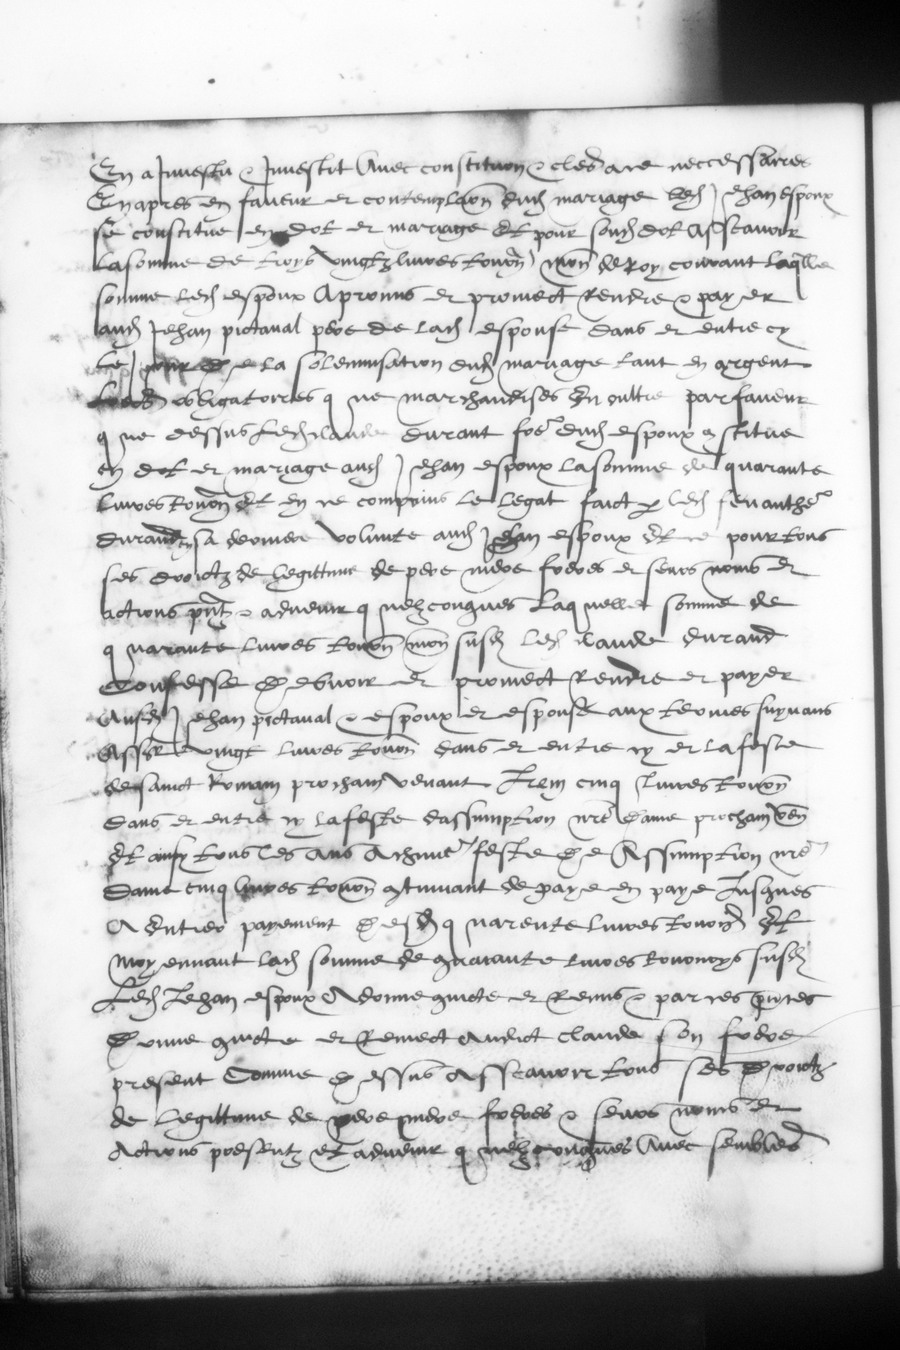 En a Jnvestu & Jnvestit Avec constitution & clesare neccessaires
Enapres en faveur et contemplaon dud mariage led Jehan espoux
se constitue en dot et mariage Et pour soud dot Asscavoir
La somme de troys vingtz livres tournˢ mon de Roy courant Laqlle
somme led espoux A promis et promect Rendre & payer
aud Jehan pictaval pere de lad espouse dans et entre cy
le jour de la solempnisation dud mariage tant en argent
obligatoires que marchandises En oultre par faveur
que dessus Led claude durant fre dud espoux constitue
en dot et mariage aud Jehan espoux La somme de quarante
livres tournˢ Et en ce comprins le legat faict p led feu anthe
durand en sa derniere volunte aud Jehan espoux Et ce pour tous
ses droictz de legittime de pere mere freres et seurs noms et
actions pntz & advenir quelzconques Laquelle somme de
quarante livres tournˢ mon susd led claude durand
Confesse debvoir et promect Rendre et payer
Ausd Jehan pictaval & espoux et espouse aux termes suyvans
Asscr vingt livres tournˢ dans et entre cy et la feste
de sainct Romain prochain venant Jtem cinq livres tournˢ
dans et entre cy la feste dassumption nre dame prochain ven
Et ainsy tous les ans A chune feste de Assumption nre
Dame cinq livres tournˢ contnuant de paye en paye Jusques
A Entier payement desd quarente livres tournˢ Et
moyennant lad somme de quarante livres tournoys susd
Led Jehan espoux A donne quicte et Remis & par ces pntes
donne quicte et Remect Audict claude son frere
present Comme dessus Asscavoir tous ses droictz
de legittime de pere mere freres & seurs noms et
Actions presentz et advenir quelzconques Avec sembles